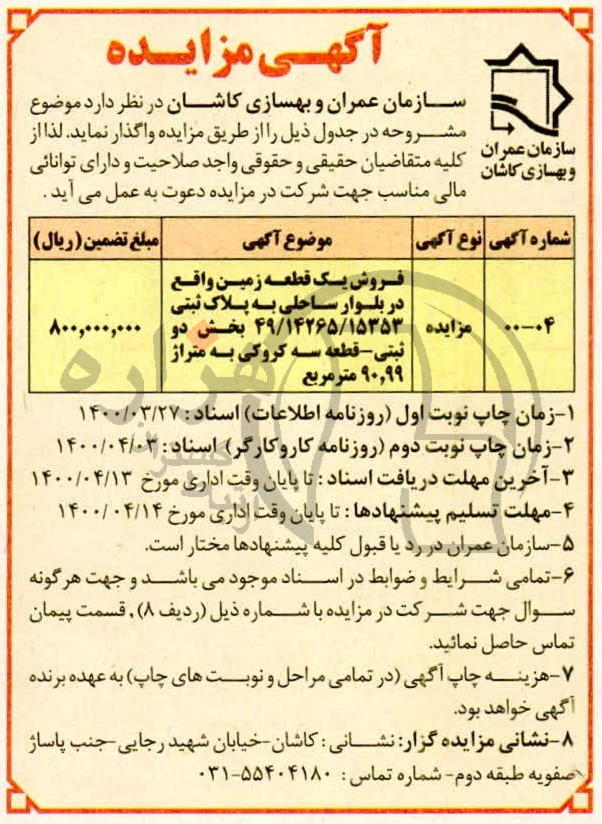 آگهی مزایده
سازمان عمران
و بهسازی کاشان
سازمان عمران و بهسازی کاشان در نظر دارد موضوع
مشروحه در جدول ذیل را از طریق مزایده واگذار نماید. لذا از
کلیه متقاضیان حقیقی و حقوقی واجد صلاحیت و دارای توانائی
مالی مناسب جهت شرکت در مزایده دعوت به عمل می آید .
شماره آگهی نوع آگهی موضوع آگهی مبلغ تضمین (ریال)
۰۰-۰۴ مزایده
فروش یک قطعه زمین واقع
در بلوار ساحلی به پلاک ثبتی
۴۹/۱۴۲۶۵/۱۵۳۵۳ بخش دو
ثبتی-قطعه سه کروکی به متراژ
۹۰,۹۹ مترمربع
۸۰۰,۰۰۰,۰۰۰
۱-زمان چاپ نوبت اول (روزنامه اطلاعات) اسناد : ۱۴۰۰/۰۳/۲۷
۲-زمان چاپ نوبت دوم (روزنامه کاروکارگر) اسناد : ۱۴۰۰/۰۴/۰۳
۳-آخرین مهلت دریافت اسناد : تا پایان وقت اداری مورخ ۱۴۰۰/۰۴/۱۳
۴-مهلت تسلیم پیشنهادها : تا پایان وقت اداری مورخ ۱۴۰۰/۰۴/۱۴
۵-سازمان عمران در رد یا قبول کلیه پیشنهادها مختار است.
۶-تمامی شرایط و ضوابط در اسناد موجود می باشد و جهت هرگونه
سوال جهت شرکت در مزایده با شماره ذیل (ردیف ۸) , قسمت پیمان
تماس حاصل نمائید.
۷-هزینه چاپ آگهی (در تمامی مراحل و نوبت های چاپ) به عهده برنده
آگهی خواهد بود.
۸-نشانی مزایده گزار: نشانی : کاشان-خیابان شهید رجایی-جنب پاساژ
صفویه طبقه دوم- شماره تماس : ۰۳۱-۵۵۴۰۴۱۸۰
هزاره